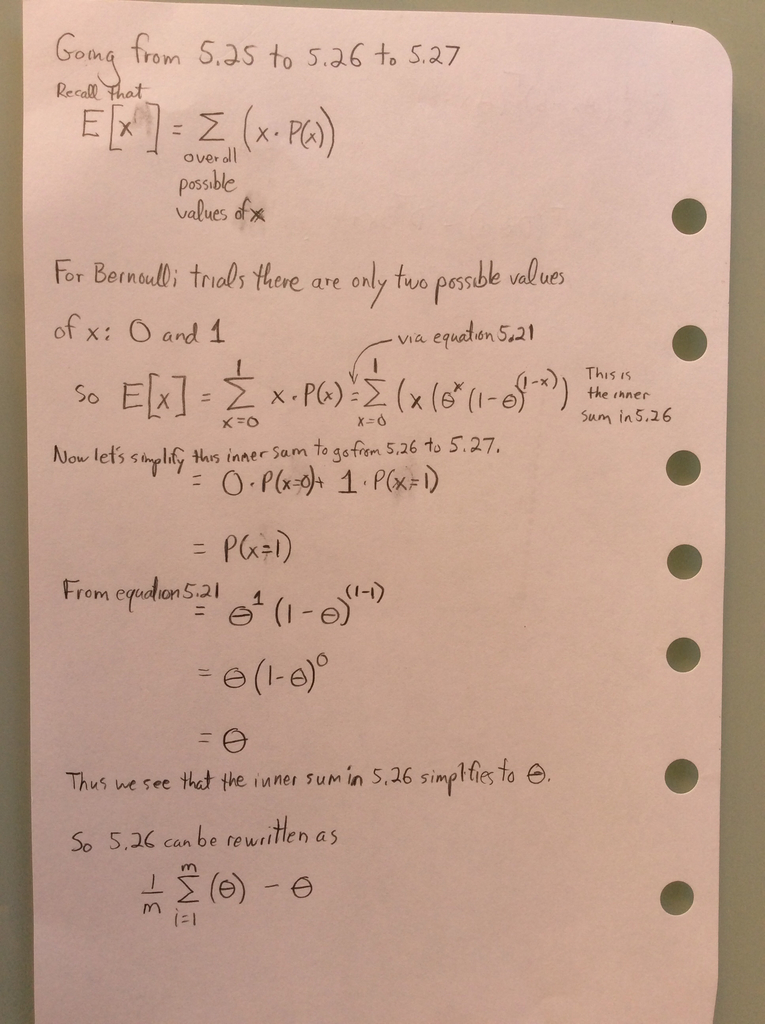 Going from 5.25 to 5.26 to 5.27
Recall that
E[x] = Σ (x · P(x))
over all
possible
values of x
For Bernoulli trials there are only two possible values
of x: 0 and 1
via equation 5.21
So E[x] = Σ_{x=0}^{1} x · P(x) = Σ_{x=0}^{1} (x (θ^x (1-θ)^(1-x)) This is the inner sum in 5.26
Now let's simplify this inner sum to go from 5.26 to 5.27.
= 0 · P(x=0) + 1 · P(x=1)
= P(x=1)
From equation 5.21
= θ^1 (1-θ)^(1-1)
= θ (1-θ)^0
= θ
Thus we see that the inner sum in 5.26 simplifies to θ.
So 5.26 can be rewritten as
1/m Σ_{i=1}^{m} (θ) - θ